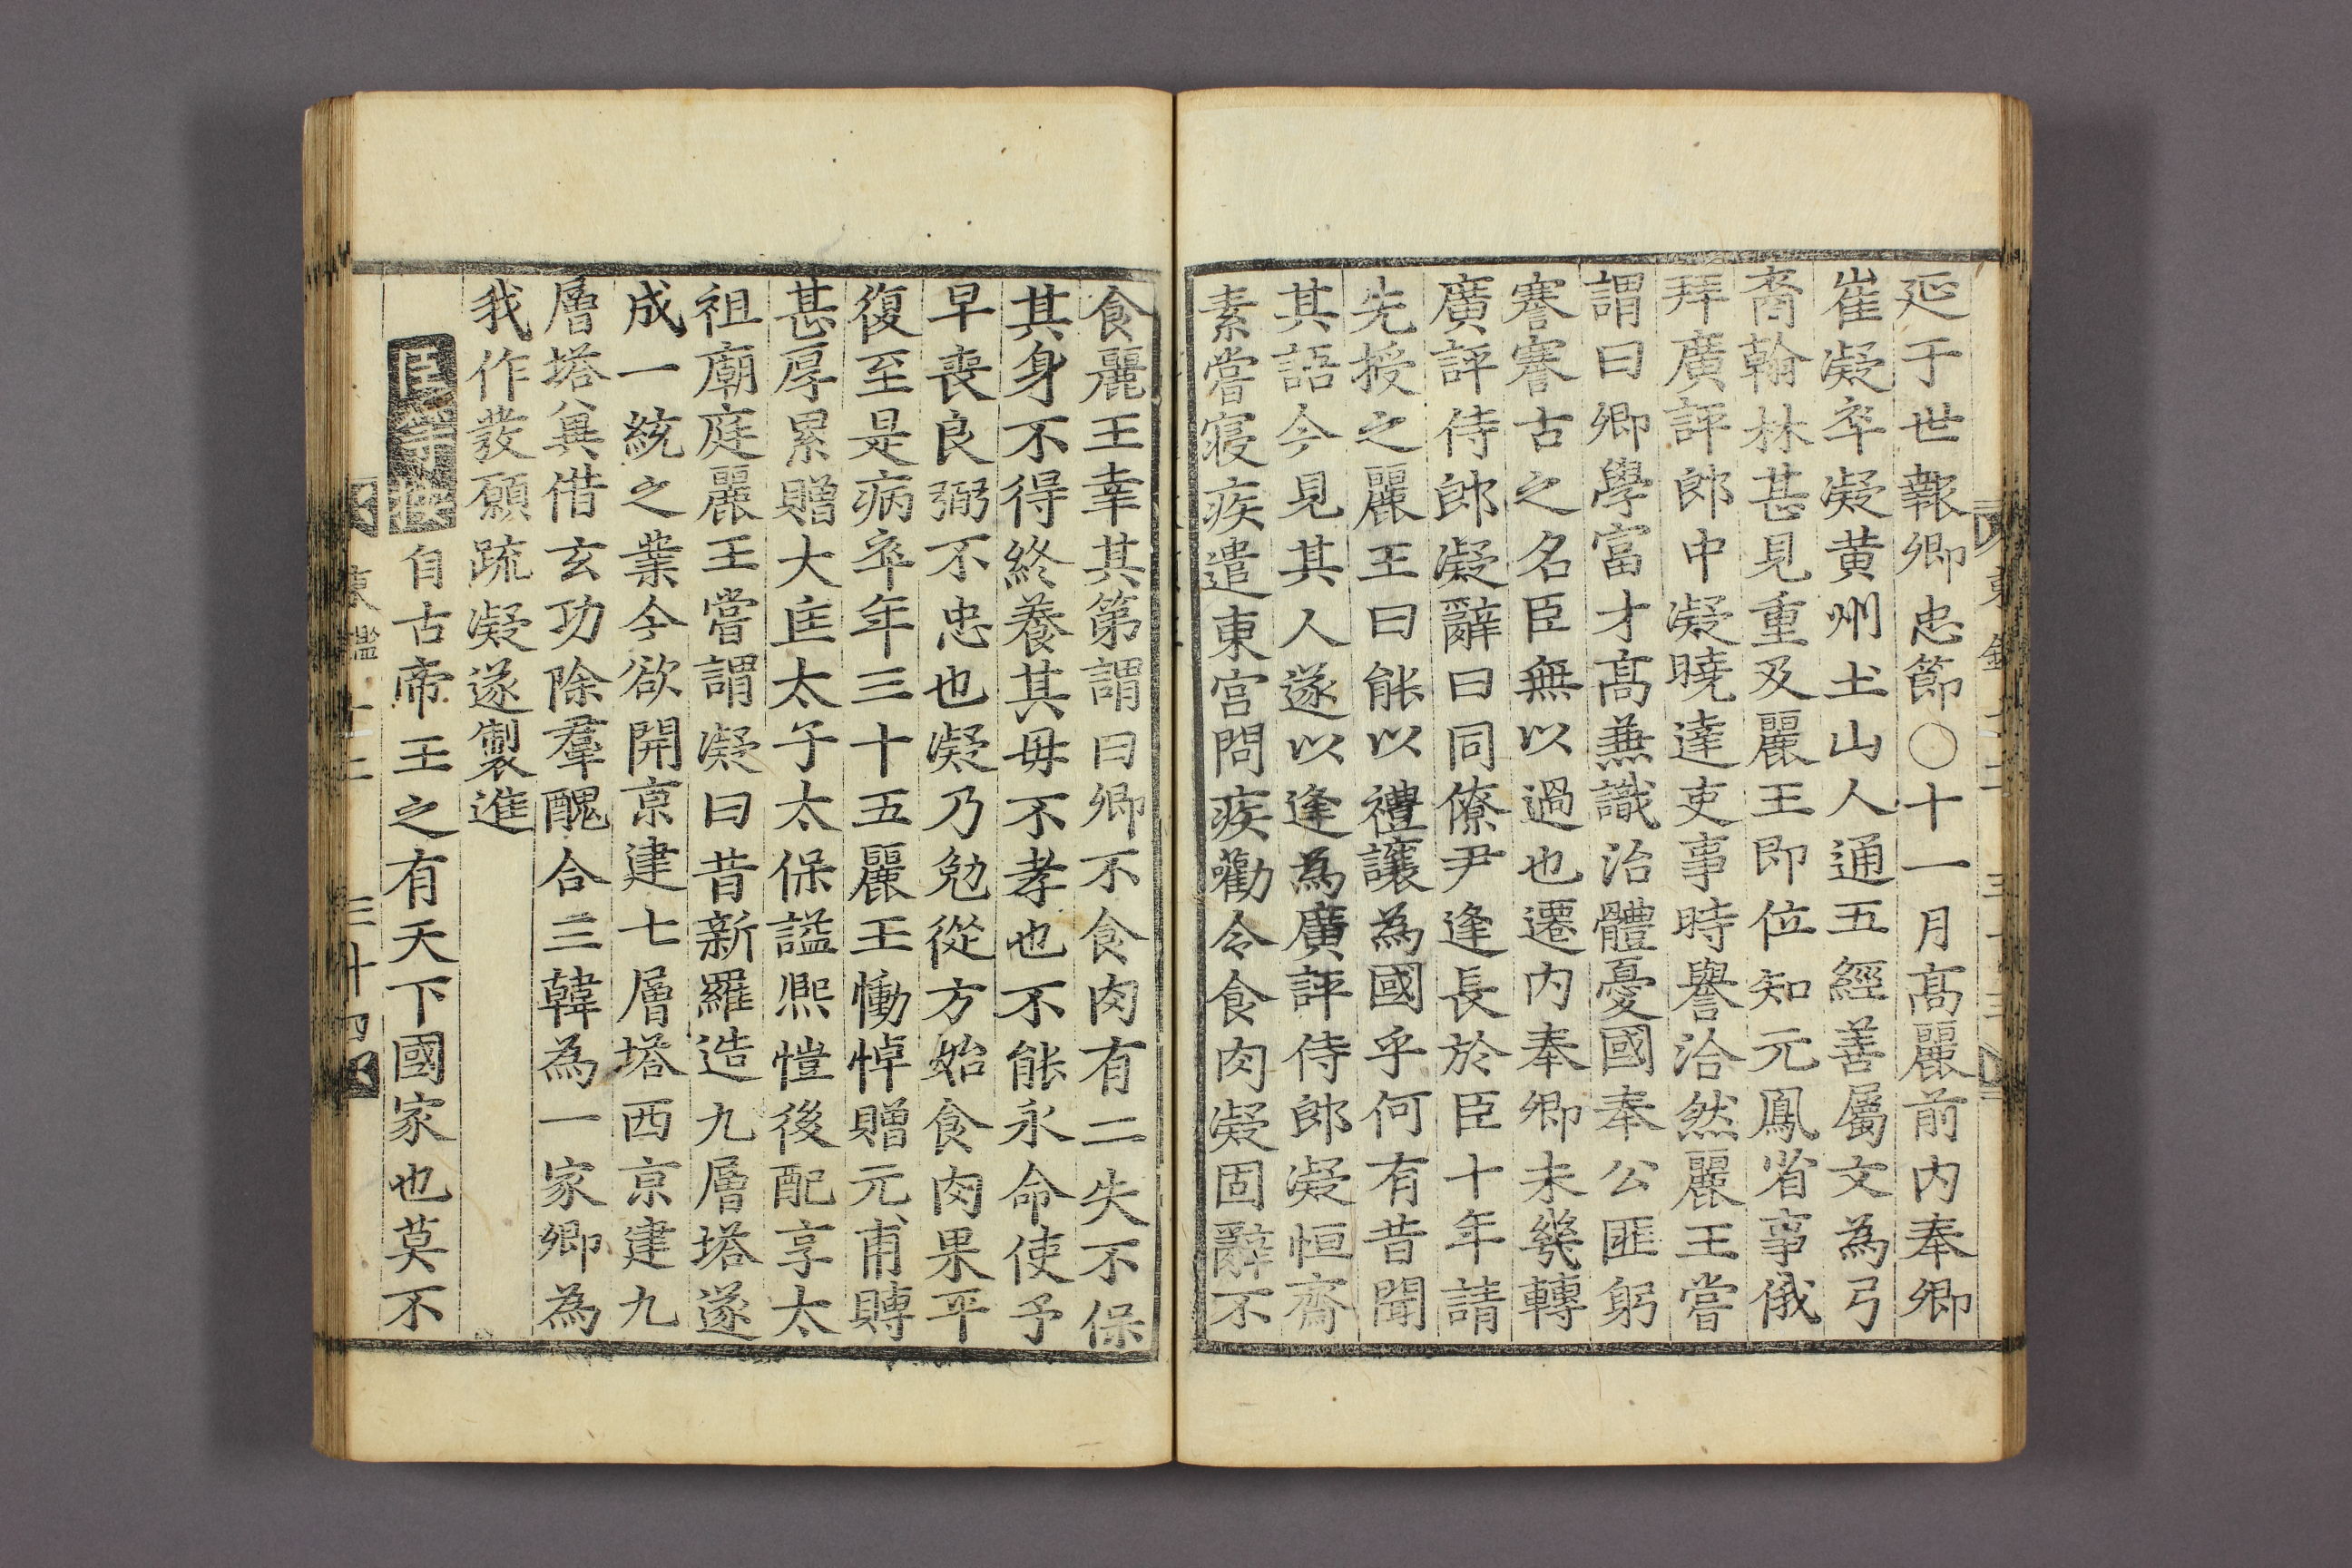 延于世報卿忠節○十一月高麗前内奉卿
崔凝卒凝黄州土山人通五經善屬文為弓
裔翰林甚見重及麗王即位知元鳳省事俄
拜廣評郎中凝曉達吏事時譽洽然麗王嘗
謂曰卿學富才高兼識治體憂國奉公匪躬
蹇蹇古之名臣無以過也遷内奉卿未幾轉
廣評侍郎凝辭曰同僚尹逢長於臣十年請
先授之麗王曰能以禮讓為國乎何有昔聞
其語今見其人遂以逢為廣評侍郎凝恒齋
素嘗寢疾遣東宮問疾勸令食肉凝固辭不
食麗王幸其第謂曰卿不食肉有二失不保
其身不得終養其母不孝也不能永命使予
早喪良弼不忠也凝乃勉從方始食肉果平
復至是病卒年三十五麗王慟悼贈元甫賻
甚厚累贈大匡太子太保謚熙愷後配享太
祖廟庭麗王嘗謂凝曰昔新羅造九層塔遂
成一統之業今欲開京建七層塔西京建九
層塔兾借玄功除羣醜合三韓為一家卿為
我作發願疏凝遂製進
自古帝王之有天下國家也莫不
東鑑十二 三十四